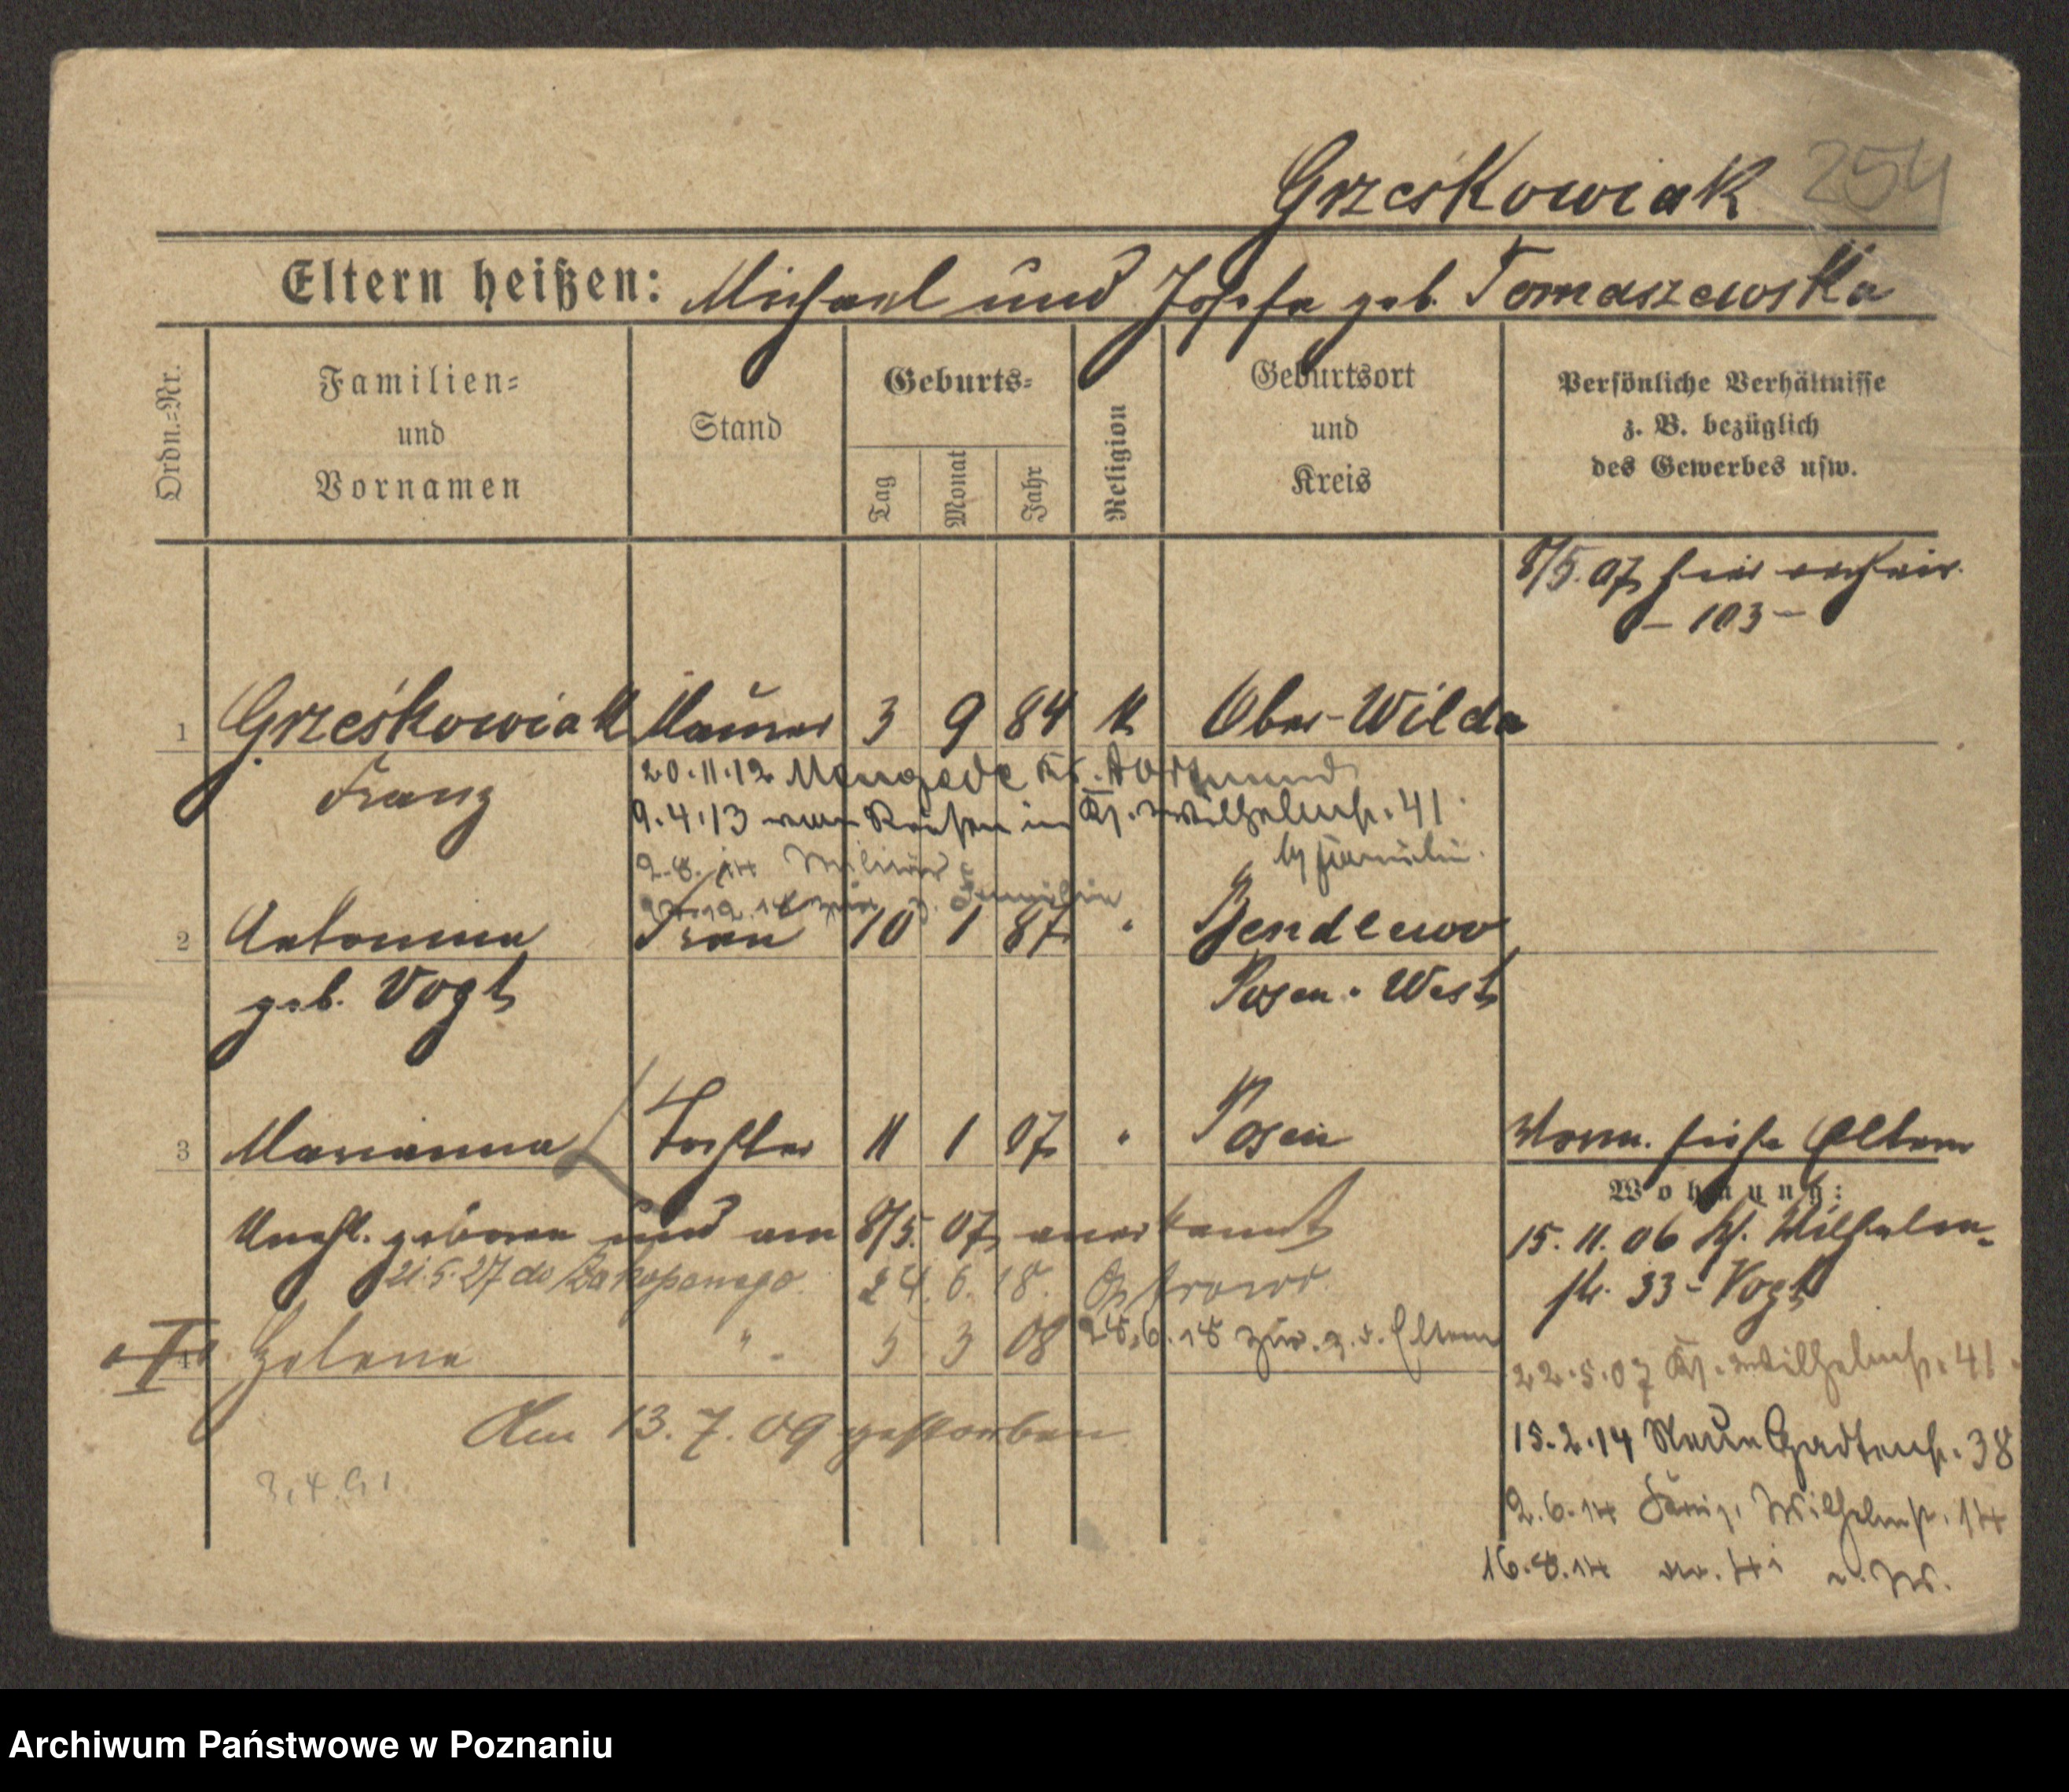 Grześkowiak 254
Eltern heißen: Michael und Josefa geb. Tomaszewska
Ordn.=Nr.
Familien=
und
Vornamen
Stand
Geburts=
Tag
Monat
Jahr
Religion
Geburtsort
und
Kreis
Persönliche Verhältnisse
z. B. bezüglich
des Gewerbes usw.
8/5.07 hier verheir.
– 103 –
1 Grześkowiak Maurer 3 9 84 k Ober-Wilda
Franz
20.11.12 Mengede Kr. Dortmund
9.4.13 von Reisen in Kr. Wilhelmstr. 41
2.8.14 Militär
2 Antonina Frau 10 1 87 " Bendlewo
geb. Vogt Posen-West
3 Marianna Tochter 11 1 07 " Posen
Vorm. siehe Eltern
Unehl. geboren und am 8/5.07 anerkannt
21.5.27 do Zakopanego 24.6.18.
4 Helene " 5 3 08 28.6.18 zur. z. d. Eltern
Am 13.7.09 gestorben
3.4.91.
Wohnung:
15.11.06 Kr. Wilhelm-
str. 33 - Vogt
22.5.07 Kr. Wilhelmstr. 41
15.2.14 Neue Gartenstr. 38
2.6.14 Wilhelmstr. 14
16.8.14
Archiwum Państwowe w Poznaniu